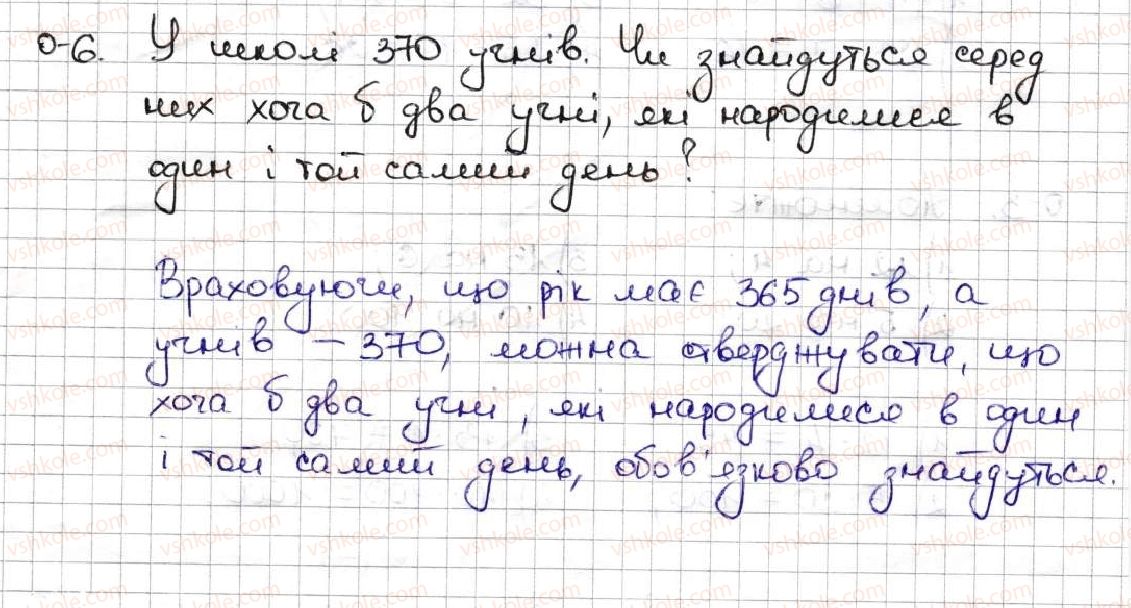 0-6. У школі 370 учнів. Чи знайдуться серед
них хоча б два учні, які народилися в
один і той самий день?
Враховуючи, що рік має 365 днів, а
учнів – 370, можна стверджувати, що
хоча б два учні, які народилися в один
і той самий день, обов'язково знайдуться.